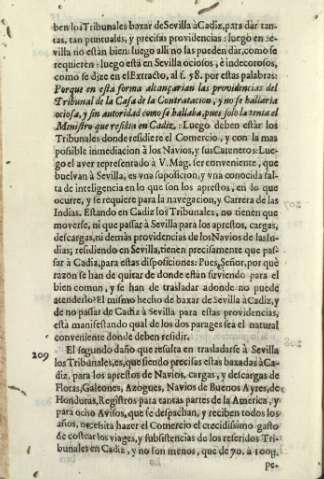 ben los Tribunales baxar de Sevilla à Cadiz, para dar tan-
tas, tan puntuales, y precisas providencias: luego en Se-
villa no están bien: luego alli no las pueden dar, como se
requieren: luego está en Sevilla ociosos, è indecorosos,
como se dize en el Extracto, al f. 58. por estas palabras:
Porque en esta forma alcançarian las providencias del
Tribunal de la Casa de la Contratacion, y no se hallaria
ociosa, y sin autoridad como se hallaba, pues solo la tenia el
Ministro que residia en Cadiz: Luego deben estàr los
Tribunales donde residiere el Comercio, y con la mas
possible inmediacion à los Navios, y sus Careneros: Lue-
go el aver representado à V. Mag. ser conveniente, que
buelvan à Sevilla, es vna suposicion, y vna conocida fal-
ta de inteligencia en lo que son los aprestos, en lo que
ocurre, y se requiere para la navegacion, y Carrera de las
Indias. Estando en Cadiz los Tribunales, no tienen que
moverse, ni que passar à Sevilla para los aprestos, cargas,
descargas, ni demàs providencias de los Navios de las In-
dias; residiendo en Sevilla, tienen precisamente que pas-
sar à Cadiz, para estas disposiciones: Pues, Señor, por què
razon se han de quitar de donde estàn sirviendo para el
bien comun, y se han de trasladar adonde no puede
atenderlo? El mismo hecho de baxar de Sevilla à Cadiz, y
de no passar de Cadiz à Sevilla para estas providencias,
està manifestando qual de los dos parages sea el natural
conveniente donde deben residir.
209 El segundo daño que resulta en trasladarse à Sevilla
los Tribunales, es, que siendo precisas estas baxadas à Ca-
diz, para los aprestos de Navios, cargas, y descargas de
Flotas, Galeones, Azogues, Navios de Buenos Ayres, de
Honduras, Registros para tantas partes de la America, y
para ocho Avisos, que se despachan, y reciben todos los
años, necessita hazer el Comercio el crecidissimo gasto
de costear los viages, y subsistencias de los referidos Tri-
bunales en Cadiz, y no son menos, que de 70. à 100y.
pe-